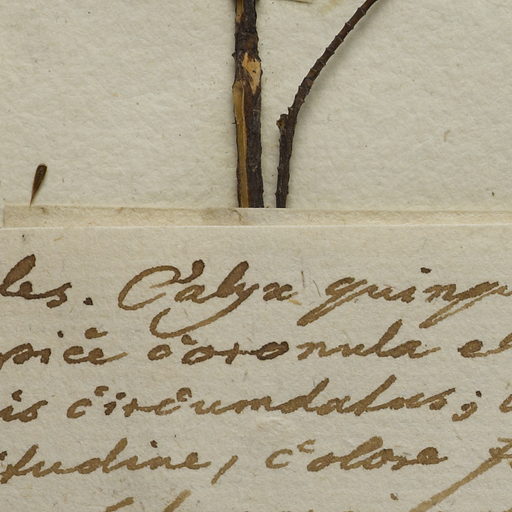 les. Calyx quinqu
pice coronula el
is circumdatus;
itudine, colore